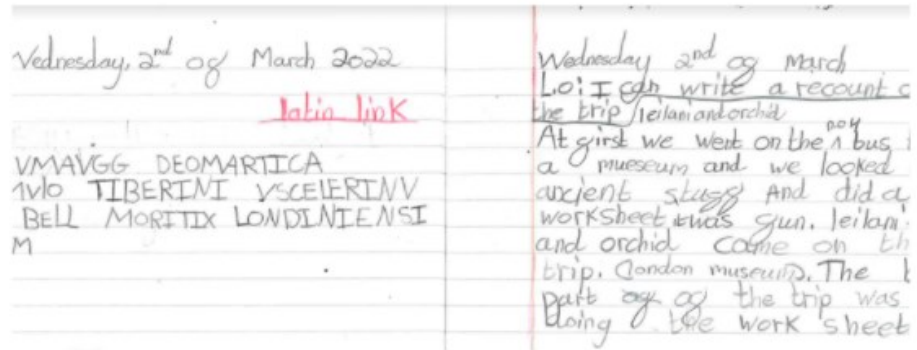 Wednesday, 2nd og March 2022
latin link
VMAVGG DEOMARTICA
TIBERINI VSCELERINV
BELL MORITIX LONDINIENSI
M
Wednesday 2nd og March
L.o: I can write a recount o
the trip leilani and orchid
At girst we went on the noy bus
a mueseum and we looked
ancient stugg And did a
worksheet it was gun. leilani
and orchid come on th
trip. London museum. The b
part og og the trip was
doing the work sheet